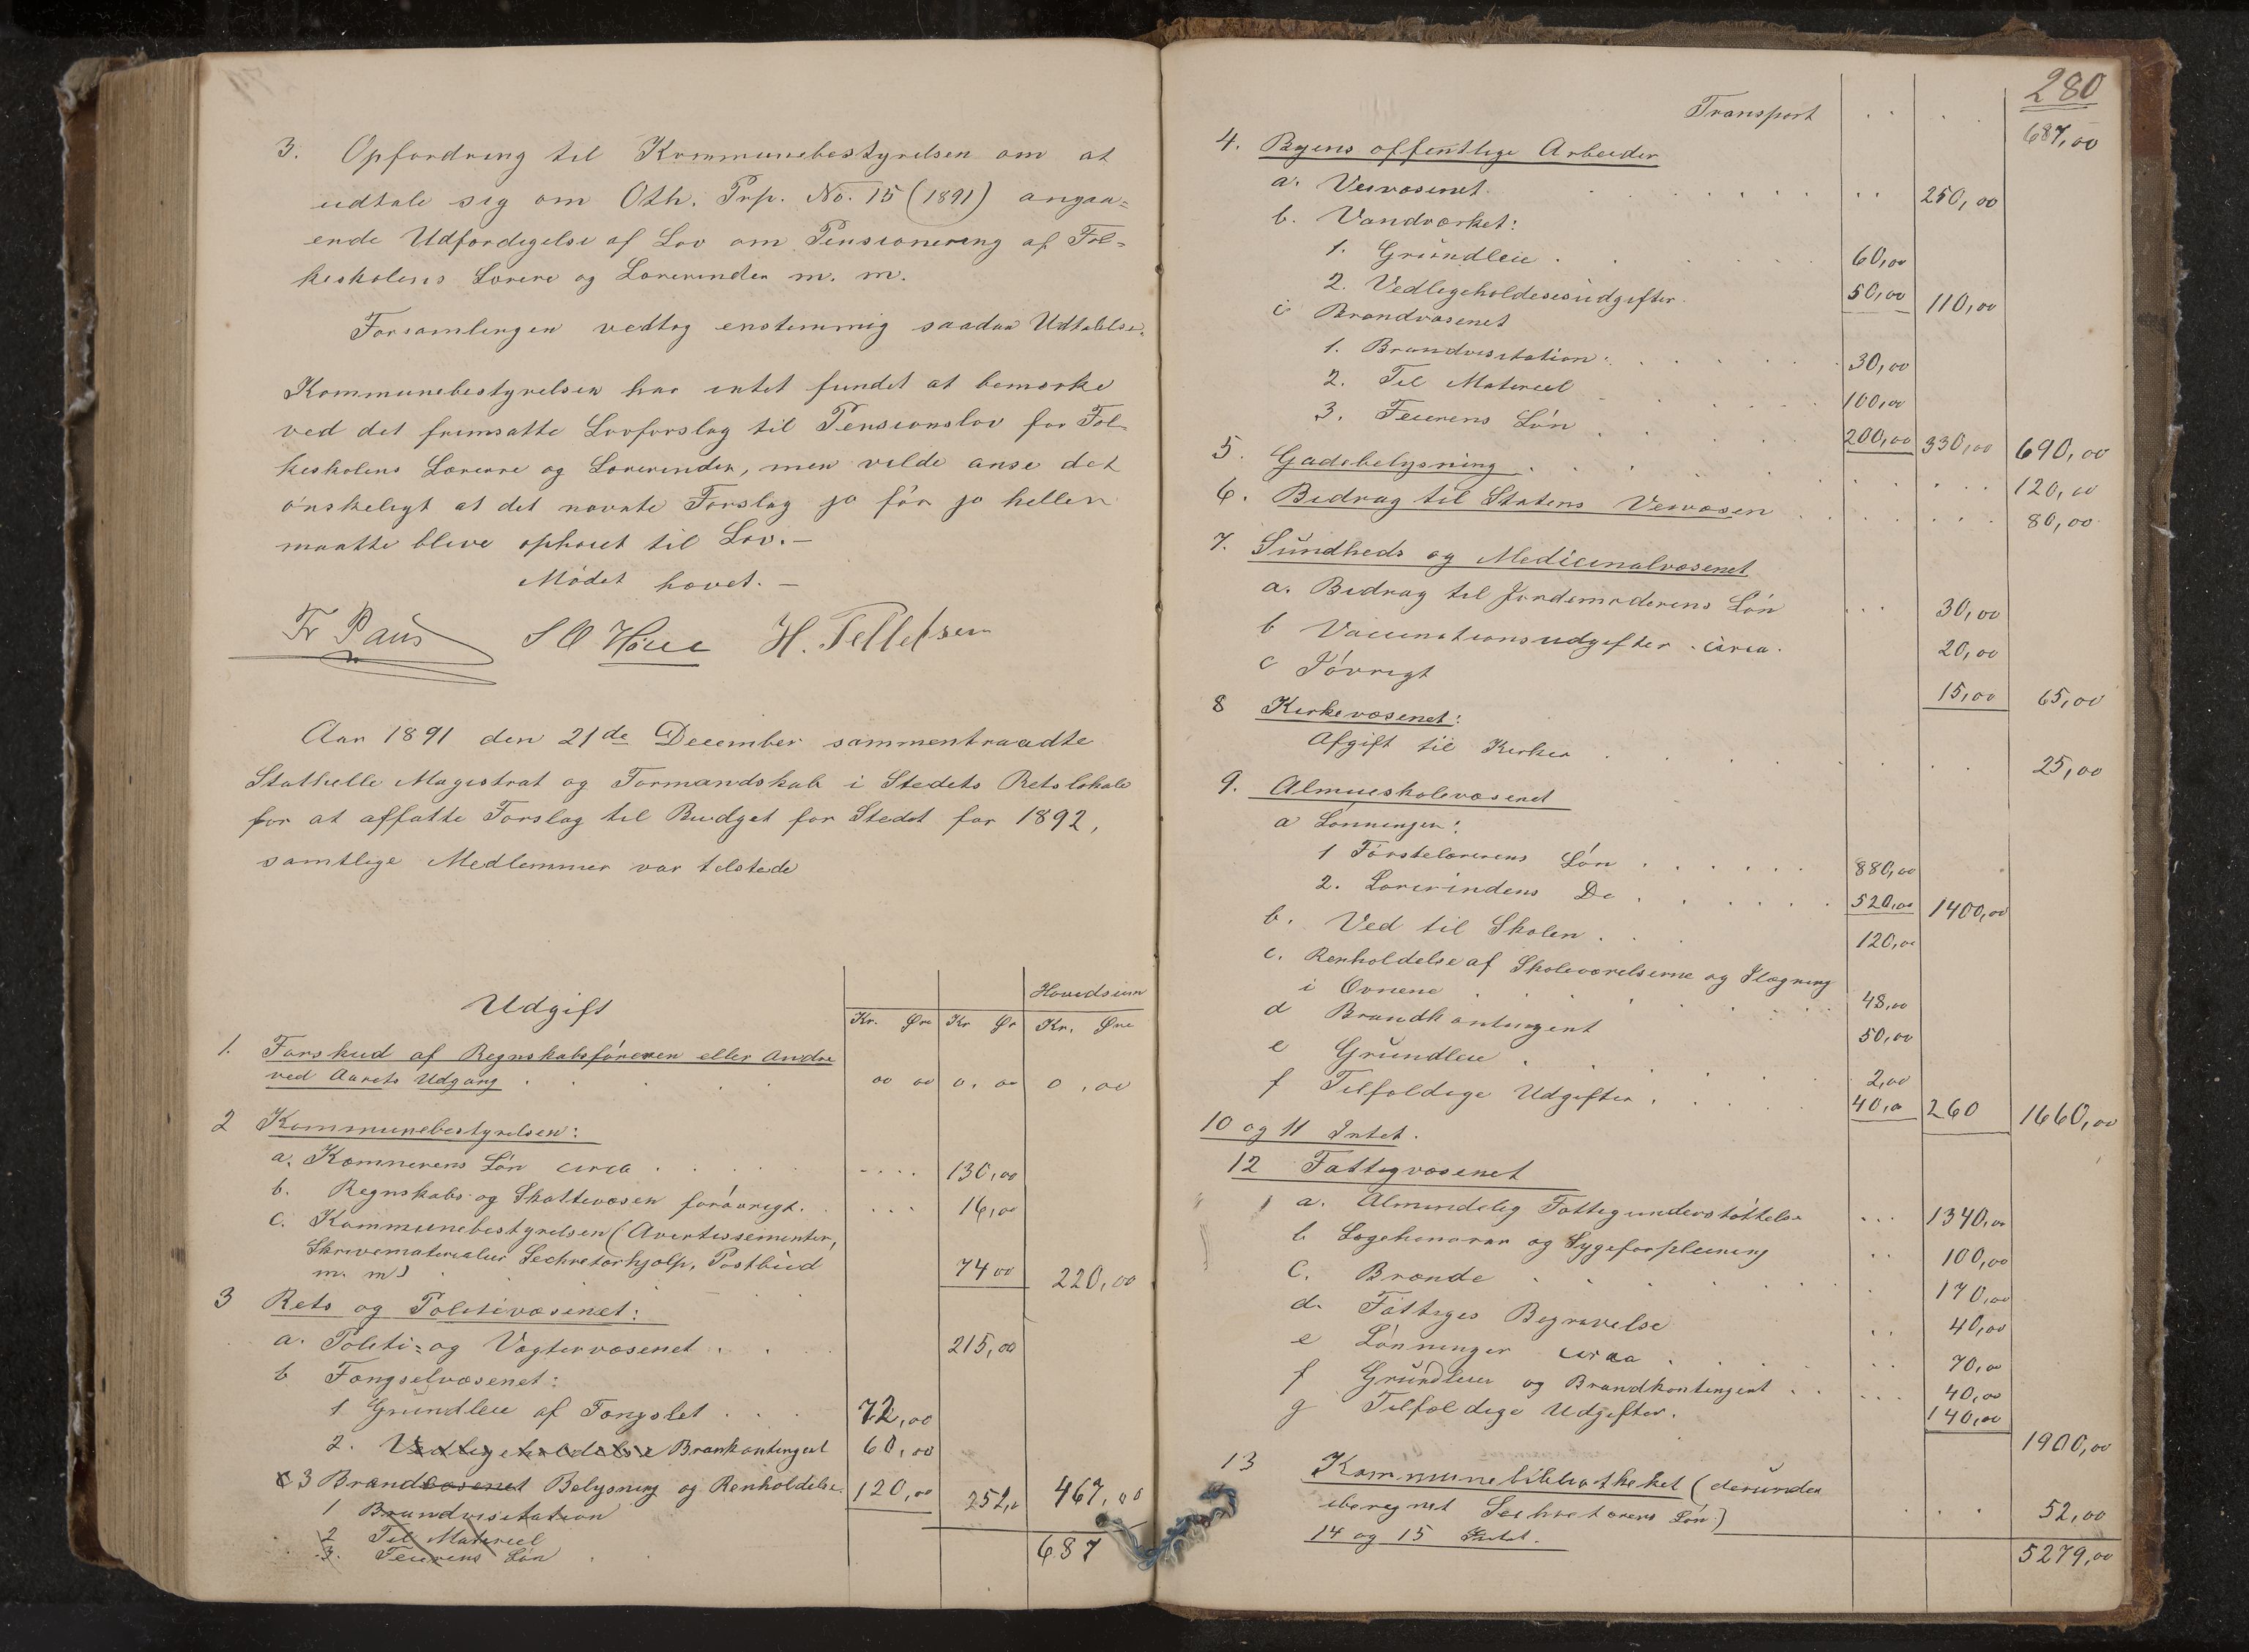 3. Opfordring til Kommunebestyrelsen om at
udtale sig om Oth. Prp. No. 15 (1891) angaa-
ende Udfærdigelse af Lov om Pensionering af Fol-
keskolens Lærere og Lærerinder m. m.
Forsamlingen vedtog enstemmig saadan Udtalelse.
Kommunebestyrelsen har intet fundet at bemærke
ved det fremsatte Lovforslag til Pensionslov for Fol-
keskolens Lærerre og Lærerinder, men vilde anse det
ønskeligt at det nævnte Forslag jo før jo heller
maatte blive ophøiet til Lov. –
Mødet hævet. –
Fr Paus H. Tellefsen
Aar 1891 den 21de December sammentraadte
Stathelle Magistrat og Formandskab i Stedets Retslokale
for at affatte Forslag til Budget for Stedet for 1892,
samtlige Medlemmer var tilstede
Udgift Hovedsum
Kr. Øre Kr Ør Kr. Øre
1. Forskud af Regnskabsføreren eller Andre
ved Aarets Udgang . . . . 00 00 0, 00 0, 00
2 Kommunebestyrelsen:
a. Kæmnerens Løn circa . . . . 130,00
b. Regnskabs og Skattevæsen forøvrigt. . . . 16,00
c. Kommunebestyrelsen (Avertissementer,
Skrivematerialier Sechretærhjælp, Postbud
m. m) 74 00 220,00
3 Rets og Politivæsenet:
a. Politi- og Vægtervæsenet . . . 215,00
b Fængselvæsenet:
1 Grundleie af Fængslet . . . 72,00
2. Vedligeholdelse Brankontingent 60,00
c 3 Brandvæsenet Belysning og Renholdelse. 120,00 252,0 467,00
1 Brandvisitation
2 Til Materiel
3. Feierens Løn
687
280
Transport . . . . 687,00
4. Byens offentlige Arbeider
a. Veivæsenet . . . . . . 250,00
b. Vandværket:
1. Grundleie . . . . 60,00
2. Vedligeholdesesudgifter. 50,00 110,00
c Brandvæsenet
1. Brandvisitation: . . . . 30,00
2. Til Materiel . . . . 100,00
3. Feierens Løn . . . . 200,00 330,00 690,00
5. Gadebelysning . . . . . . 120,00
6. Bidrag til Statens Veivæsen . . . . 80,00
7. Sundheds og Medicinalvæsenet
a. Bidrag til Jordemoderens Løn . . . 30,00
b Vaccinationsudgifter . circa . 20,00
c Iøvrigt 15,00 65,00
8 Kirkevæsenet:
Afgift til Kirken . . . . . . 25,00
9. Almueskolevæsenet
a Lønninger:
1 Førstelærerens Løn . . . . . 880,00
2. Lærerindens Do . . . . . 520,00 1400,00
b. Ved til Skolen . . . 120,00
c. Renholdelse af Skoleværelserne og Ilægning
i Ovnene . . . . . . 48,00
d Brandkontingent 50,00
e Grundleie . . . . . 2,00
f Tilfældige Udgifter . . . . 40,0 260 1660,00
10 og 11 Intet.
12 Fattigvæsenet
a. Almindelig Fattigunderstøttelse . . . 1340,00
b Lægehonorar og Sygeforpleining . . 100,00
C. Brænde . . . . . . 170,00
d. Fattiges Begravelse . . 40,00
e Lønninger circa . . . . 70,00
f Grundleie og Brandkontingent . . . . . 40,00
g Tilfældige Udgifter. 140,00
1900,00
13 Kommunebibliotheket (derunder
iberegnet Sechretærens Løn) . . 52,00
14 og 15 Intet.
5279,00